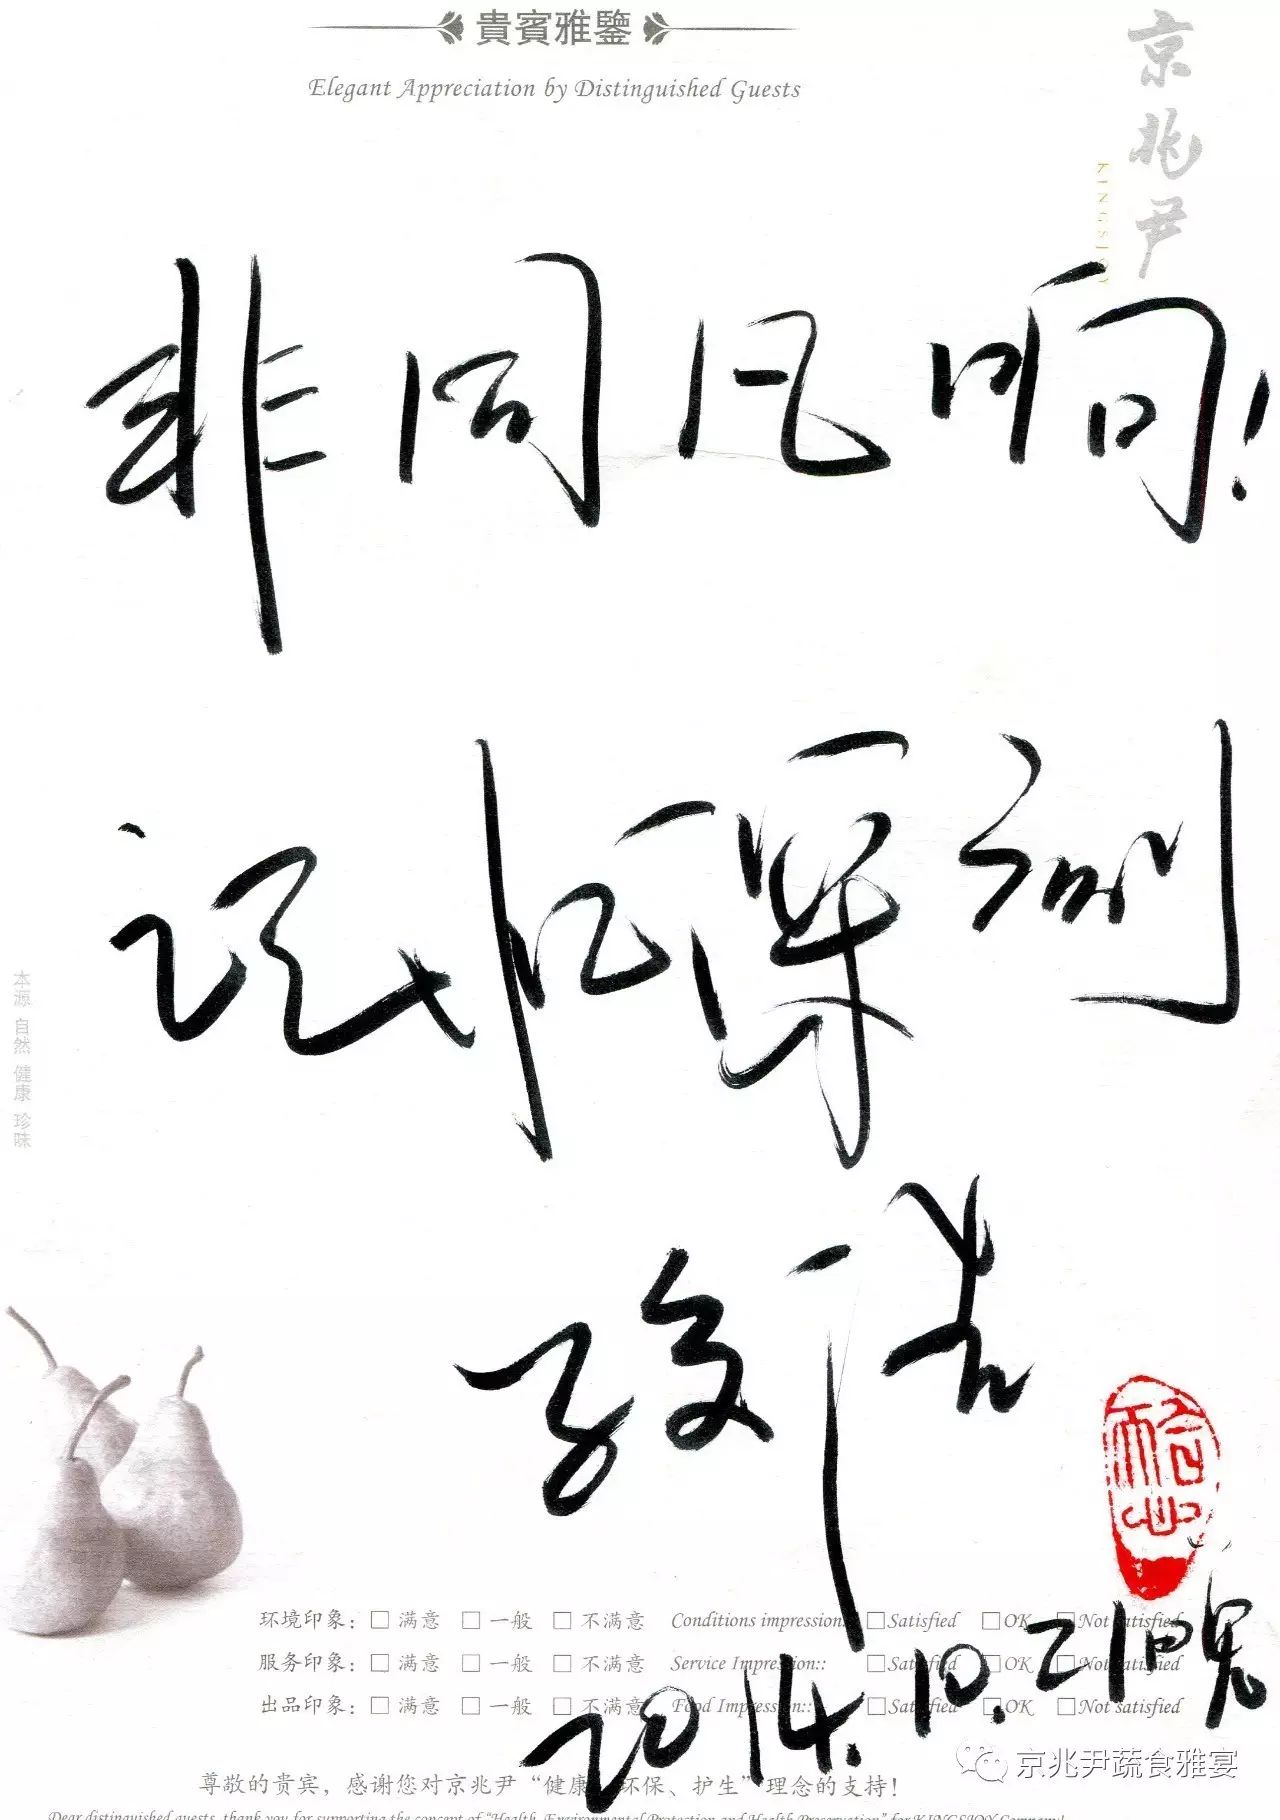 貴賓雅鑒
Elegant Appreciation by Distinguished Guests
京兆尹
KINGSJOY
非同凡响!
记忆深刻
本源 自然 健康 珍味
环境印象: □ 满意 □ 一般 □ 不满意 Conditions impression: □Satisfied □OK □Not satisfied
服务印象: □ 满意 □ 一般 □ 不满意 Service Impression:: □Satisfied □OK □Not satisfied
出品印象: □ 满意 □ 一般 □ 不满意 Food Impression:: □Satisfied □OK □Not satisfied
2014.10.21日晚
京兆尹蔬食雅宴
尊敬的贵宾，感谢您对京兆尹“健康、环保、护生”理念的支持!
Dear distinguished guests, thank you for supporting the concept of “Health, Environmental Protection and Health Preservation” for KINGSJOY Company!